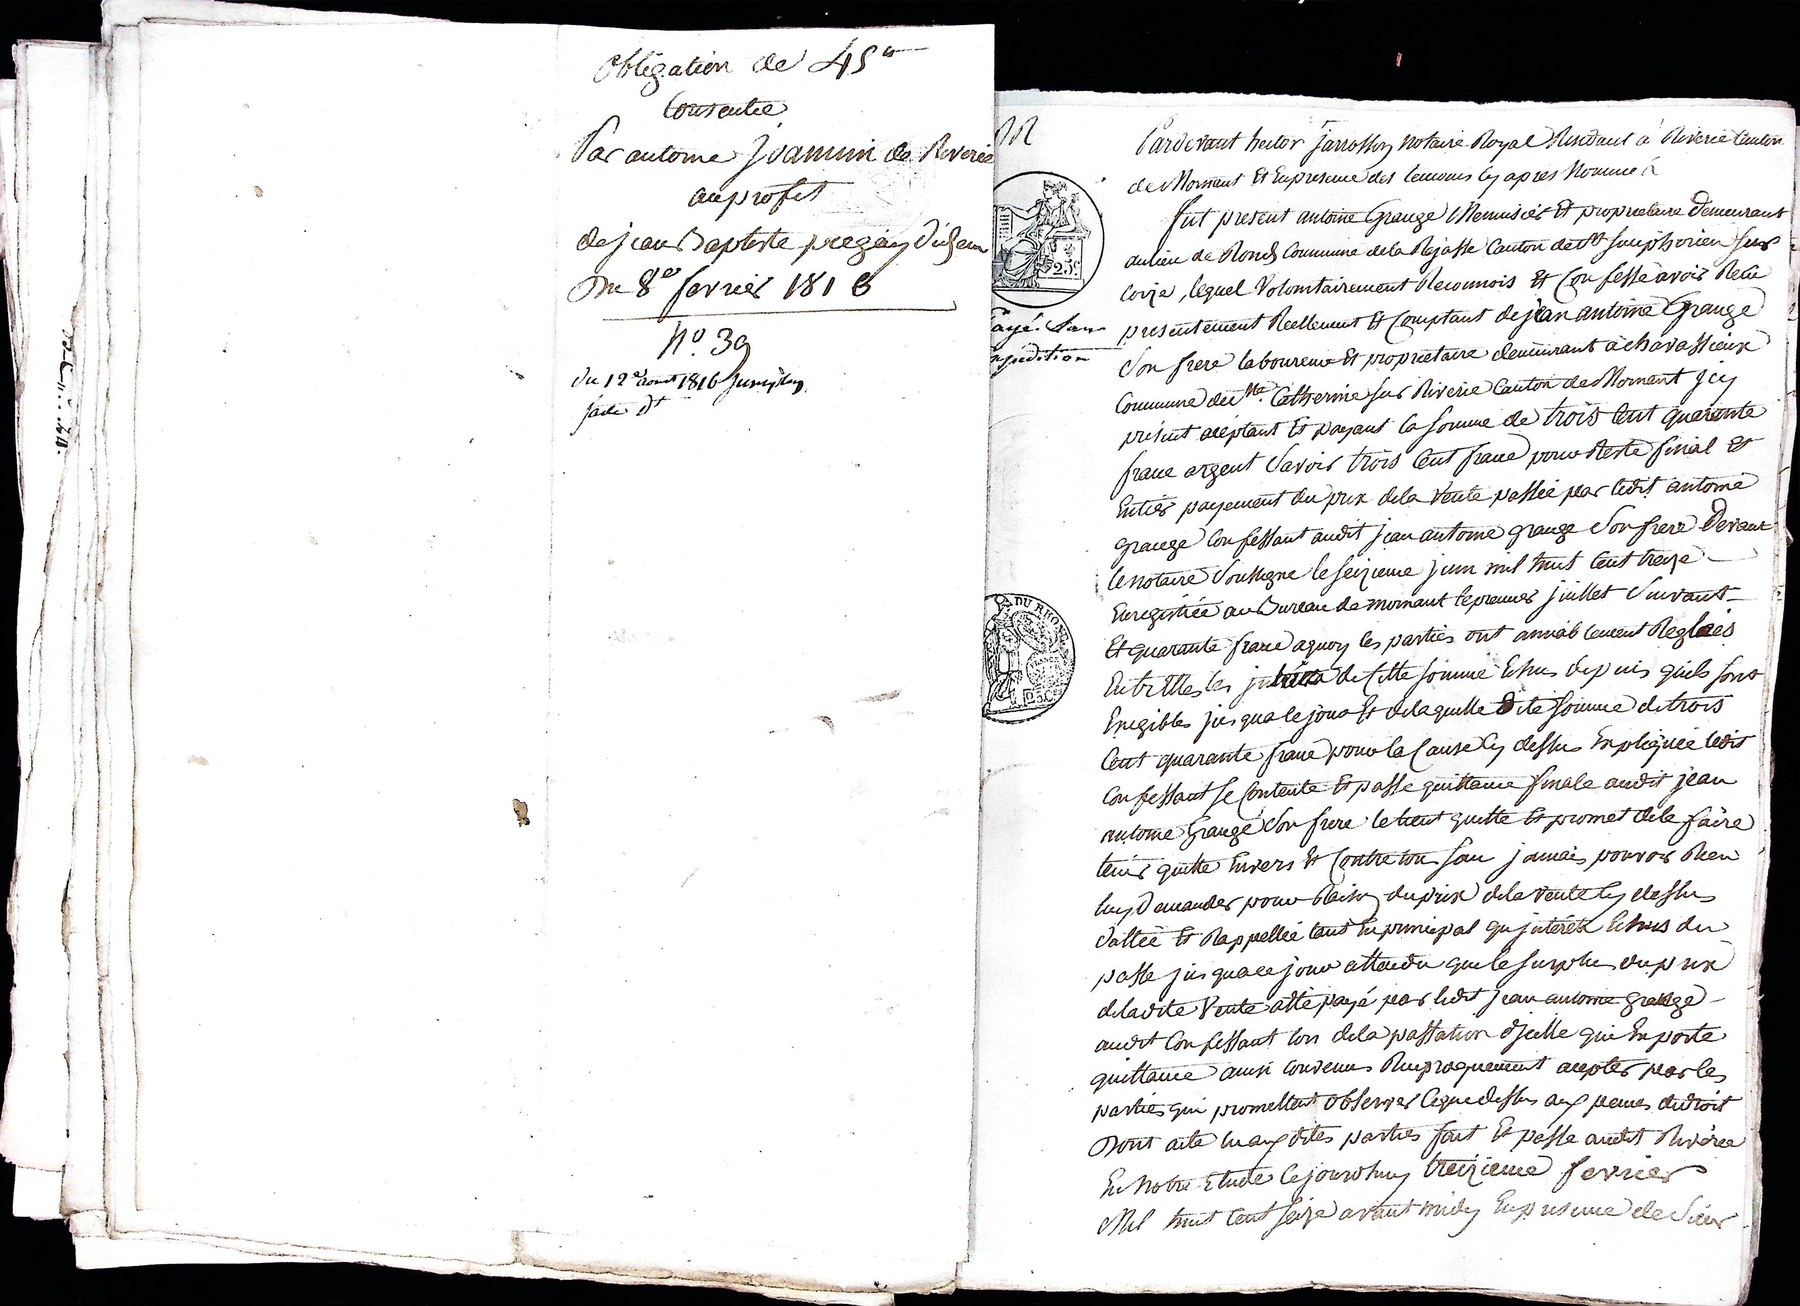 Obligation de 45
Consentie
Par antoine Joannin de Riverie
au profit
de jean Baptiste
Du 8e fevrier 1816
N°. 39
du 12e aout 1816
faite dt
Pardevant hector Jarrosson notaire Royal Résidant à Riverie Canton
de Mornant Et En presence des temoins cy apres Nommés
fut present antoine Grange Menuisier Et proprietaire Demeurant
au lieu de Commune de la Rajasse Canton de St Simphorien sur
Coize, lequel Volontairement Reconnois Et Confesse avoir Recu
presentement Reellement Et Comptant de jean antoine Grange
Son frere laboureur Et proprietaire demeurant à chavassieux
Commune de Ste Catherine sur Riverie Canton de Mornant Icy
present aceptant Et payant la Somme de trois Cent quarante
franc argent Savoir trois Cent franc pour Reste final et
Entier payement du prix dela Vente passée par ledit antoine
grange Confessant audit jean antoine grange Son frere Devant
le notaire Soussigné le seizieme juin mil huit Cent treize
Enregistrée au Bureau de mornant le premier juillet Suivant
Et quarante franc aquoy les parties ont amiablement Reglées
Entr'Elles les de Cette somme Echus depuis quils sont
Exigibles jusqua ce jour Et de laquelle dite somme de trois
Cent quarante franc pour la Cause Cy dessus Expliquée ledit
Confessant se Contente Et passe quittance finale audit jean
antoine Grange Son frere le tient quitte Et promet dele faire
tenir quitte Envers Et Contre tous sans jamais pouvoir Rien
luy Demander pour Raison du prix dela Vente Cy dessus
Dattée Et Rappellée tant En principal qu'interêts Echus du
passé jusqua ce jour attendu que le surplus du prix
deladite Vente a été payé par ledit jean antoine grange
audit Confessant lors dela passation d'jcelle qui En porte
quittance ainsi convenu Reciproquement acepter par les
parties qui promettent observer Ceque dessus aux peines de droit
Dont acte lu aux dites parties fait Et passé audit Riverie
En Notre Etude Cejourdhuy treizieme fevrier
Mil huit Cent seize avant midy En presence de Sieur
Payé. Sans
Expédition
25c
DU RHONE